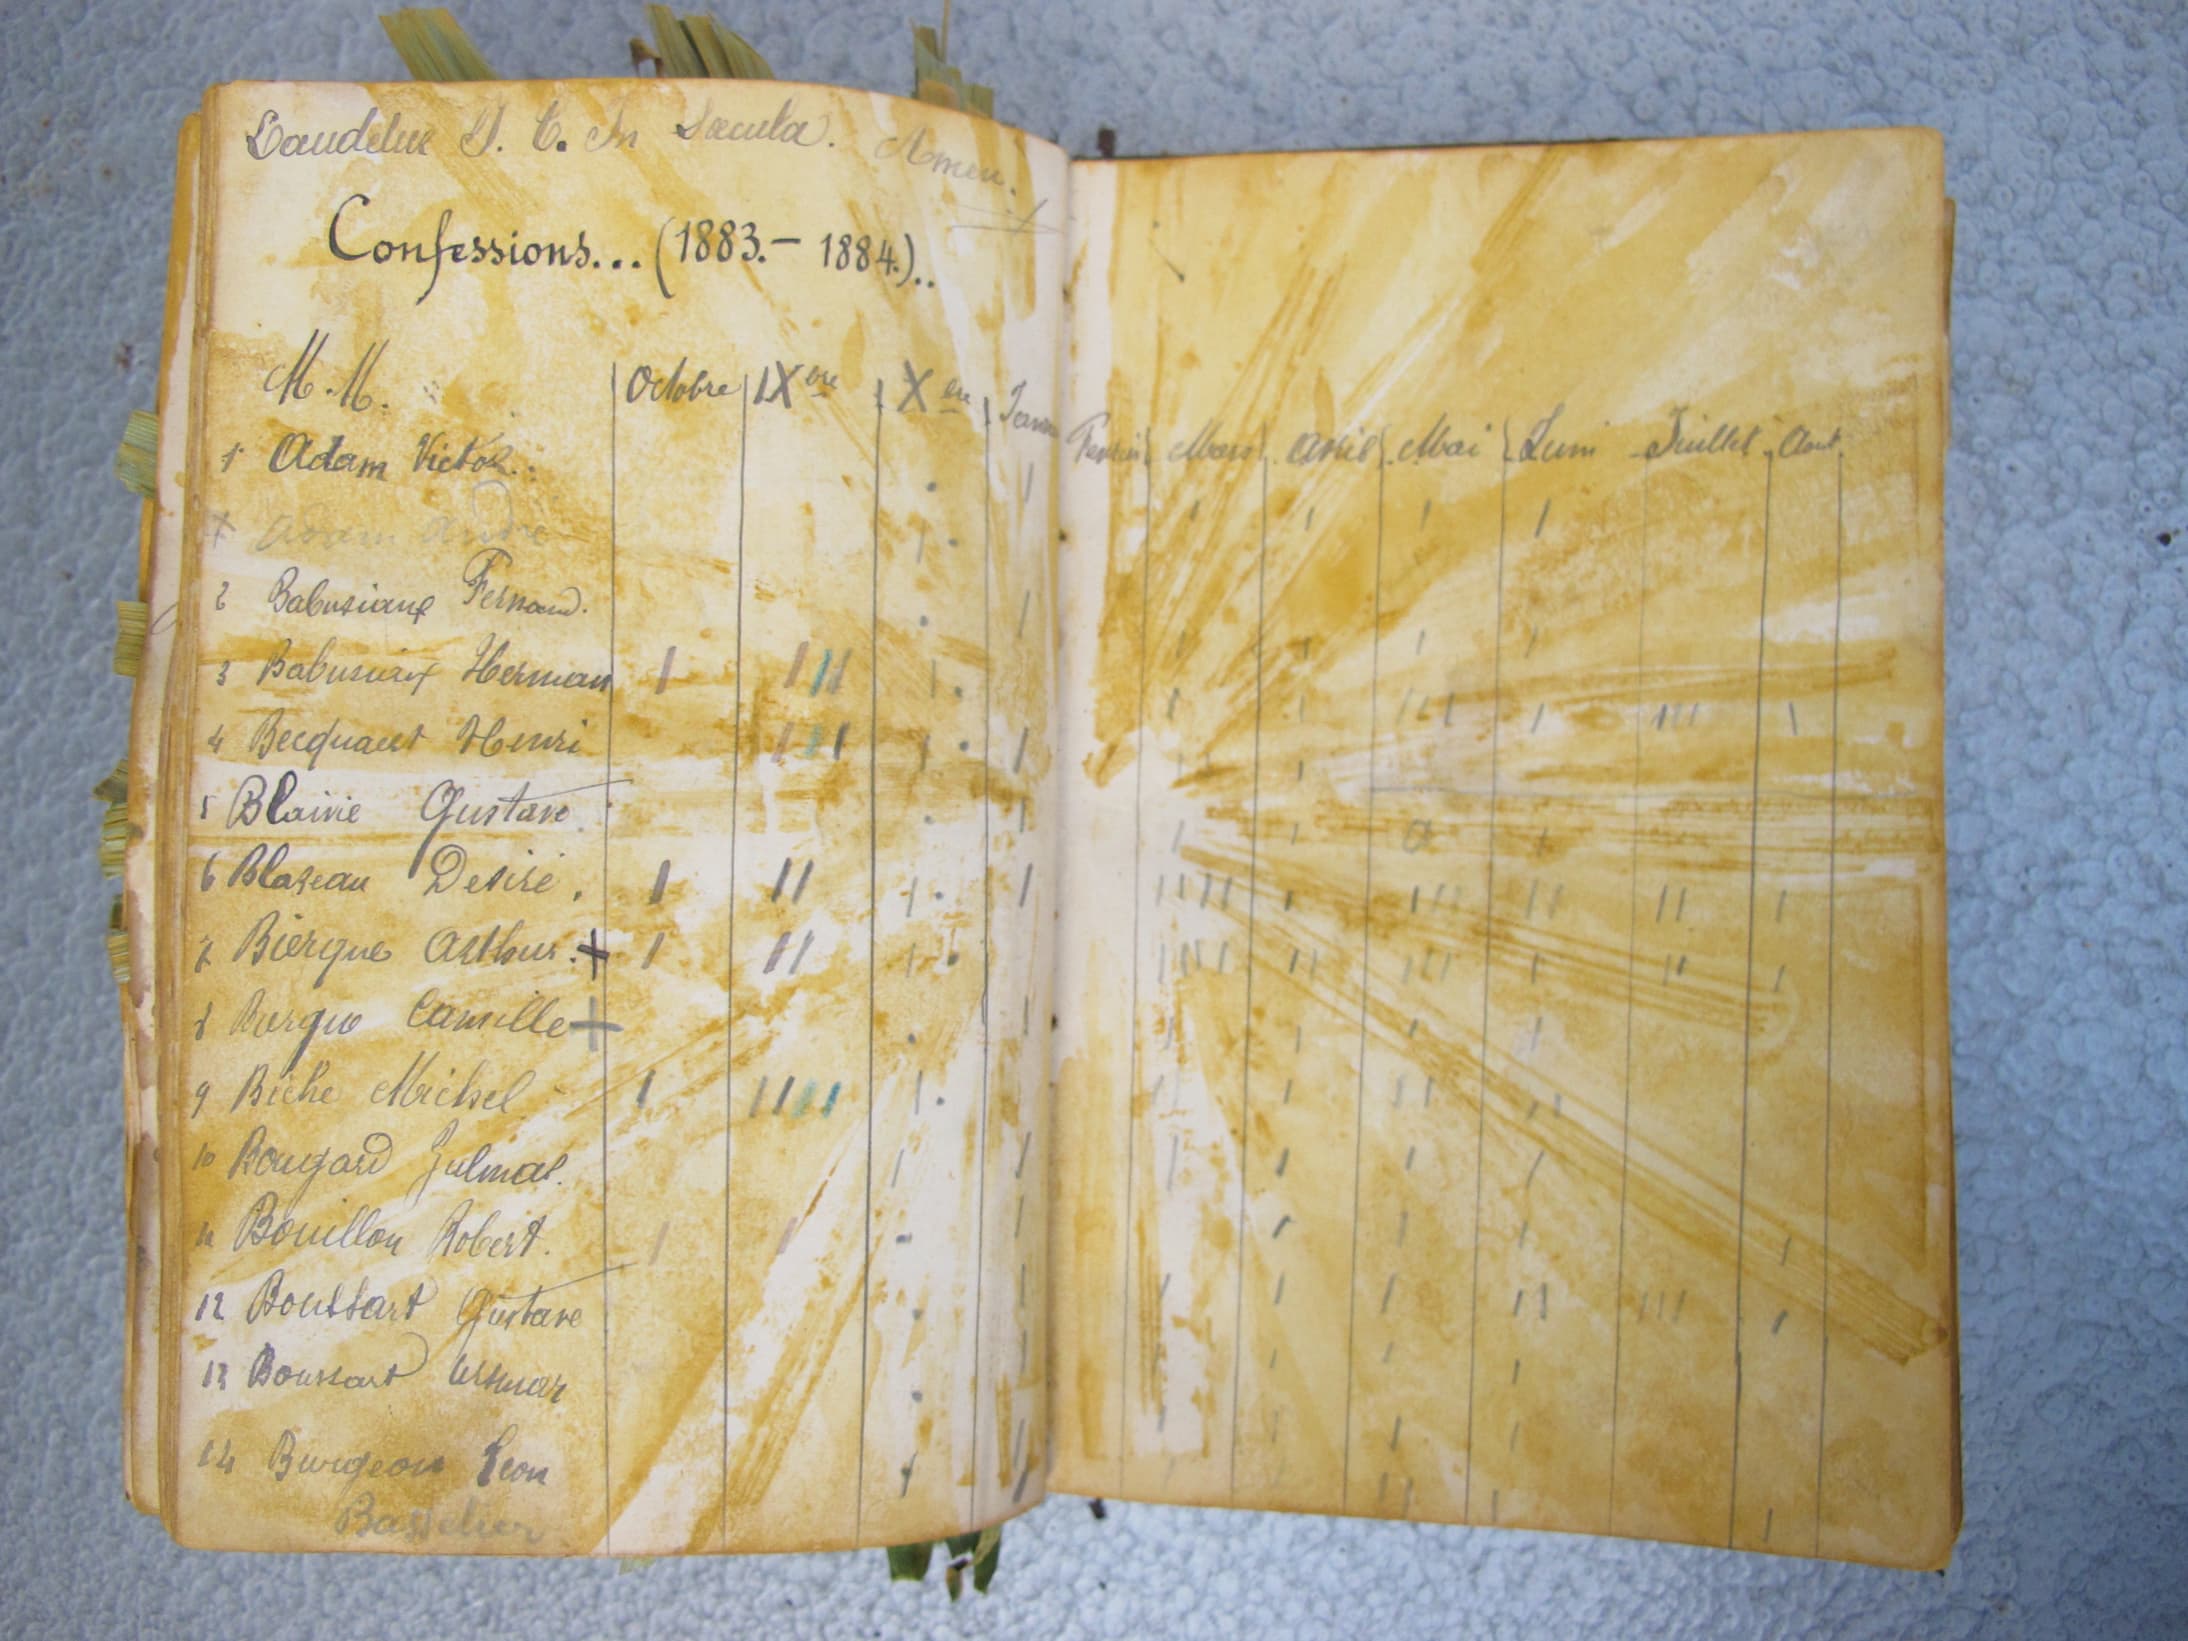 Laudetur J. C. In Sæcula. Amen.
Confessions... (1883.- 1884.)..
M. M. Octobre IXbre Xbre Janv
Fevrier Mars Avril Mai Juin Juillet Aout
1 Adam Victor.
+ Adam André
2 Babusiaux Fernand.
3 Babusiaux Herman
4 Becquaert Henri
5 Blairie Gustave
6 Blaseau Desiré.
7 Biergue Arthur. +
8 Biergue Camille +
9 Biche Michel
10 Bougard Julmar.
11 Bouillon Robert.
12 Boussart Gustave
13 Boussart Ursmar
14 Burgeon Leon
Basselier